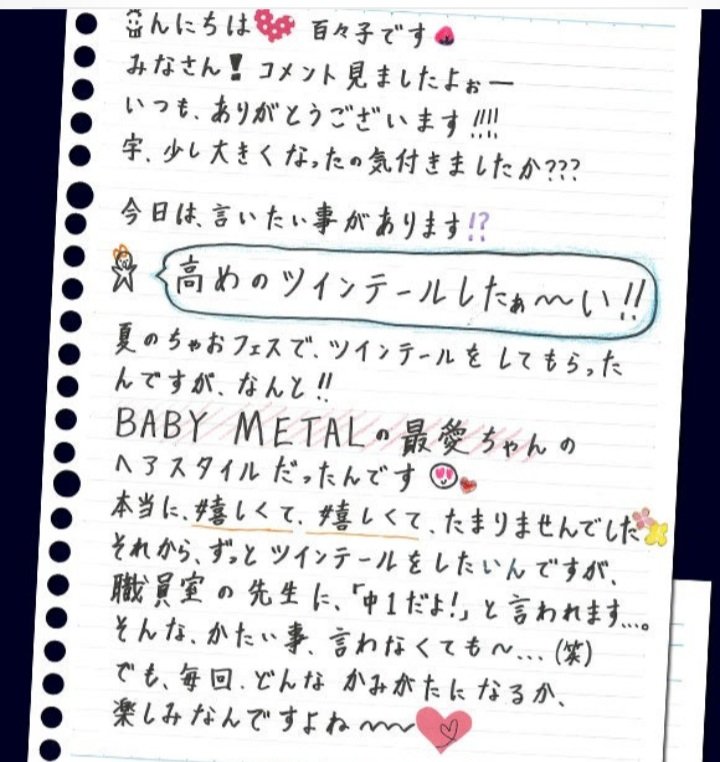 こんにちは 百々子です
みなさん! コメント見ましたよぉー
いつも、ありがとうございます!!!!
字、少し大きくなったの気付きましたか???
今日は、言いたい事があります!?
高めのツインテールしたぁ〜い!!
夏のちゃおフェスで、ツインテールをしてもらった
んですが、なんと!!
BABY METALの最愛ちゃんの
ヘアスタイルだったんです
本当に、#嬉しくて、#嬉しくて、たまりませんでした
それから、ずっとツインテールをしたいんですが、
職員室の先生に、「中1だよ!」と言われます...。
そんな、かたい事、言わなくても〜...(笑)
でも、毎回、どんなかみがたになるか、
楽しみなんですよね〜〜